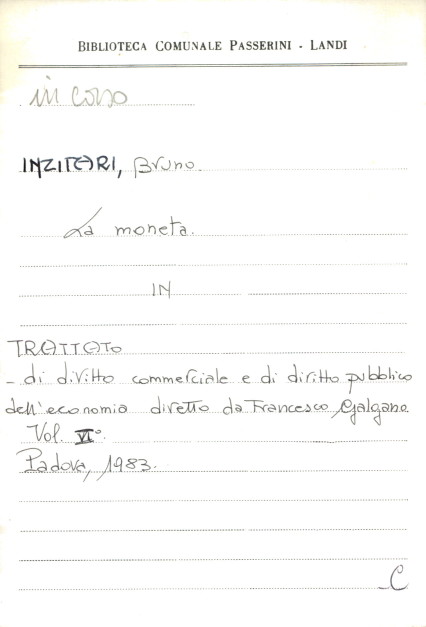 BIBLIOTECA COMUNALE PASSERINI - LANDI
in corso
INZITARI, Bruno.
La moneta.
IN
TRATTATO
- di diritto commerciale e di diritto pubblico
dell'economia diretto da Francesco Galgano.
Vol. VI°.
Padova, 1983.
C